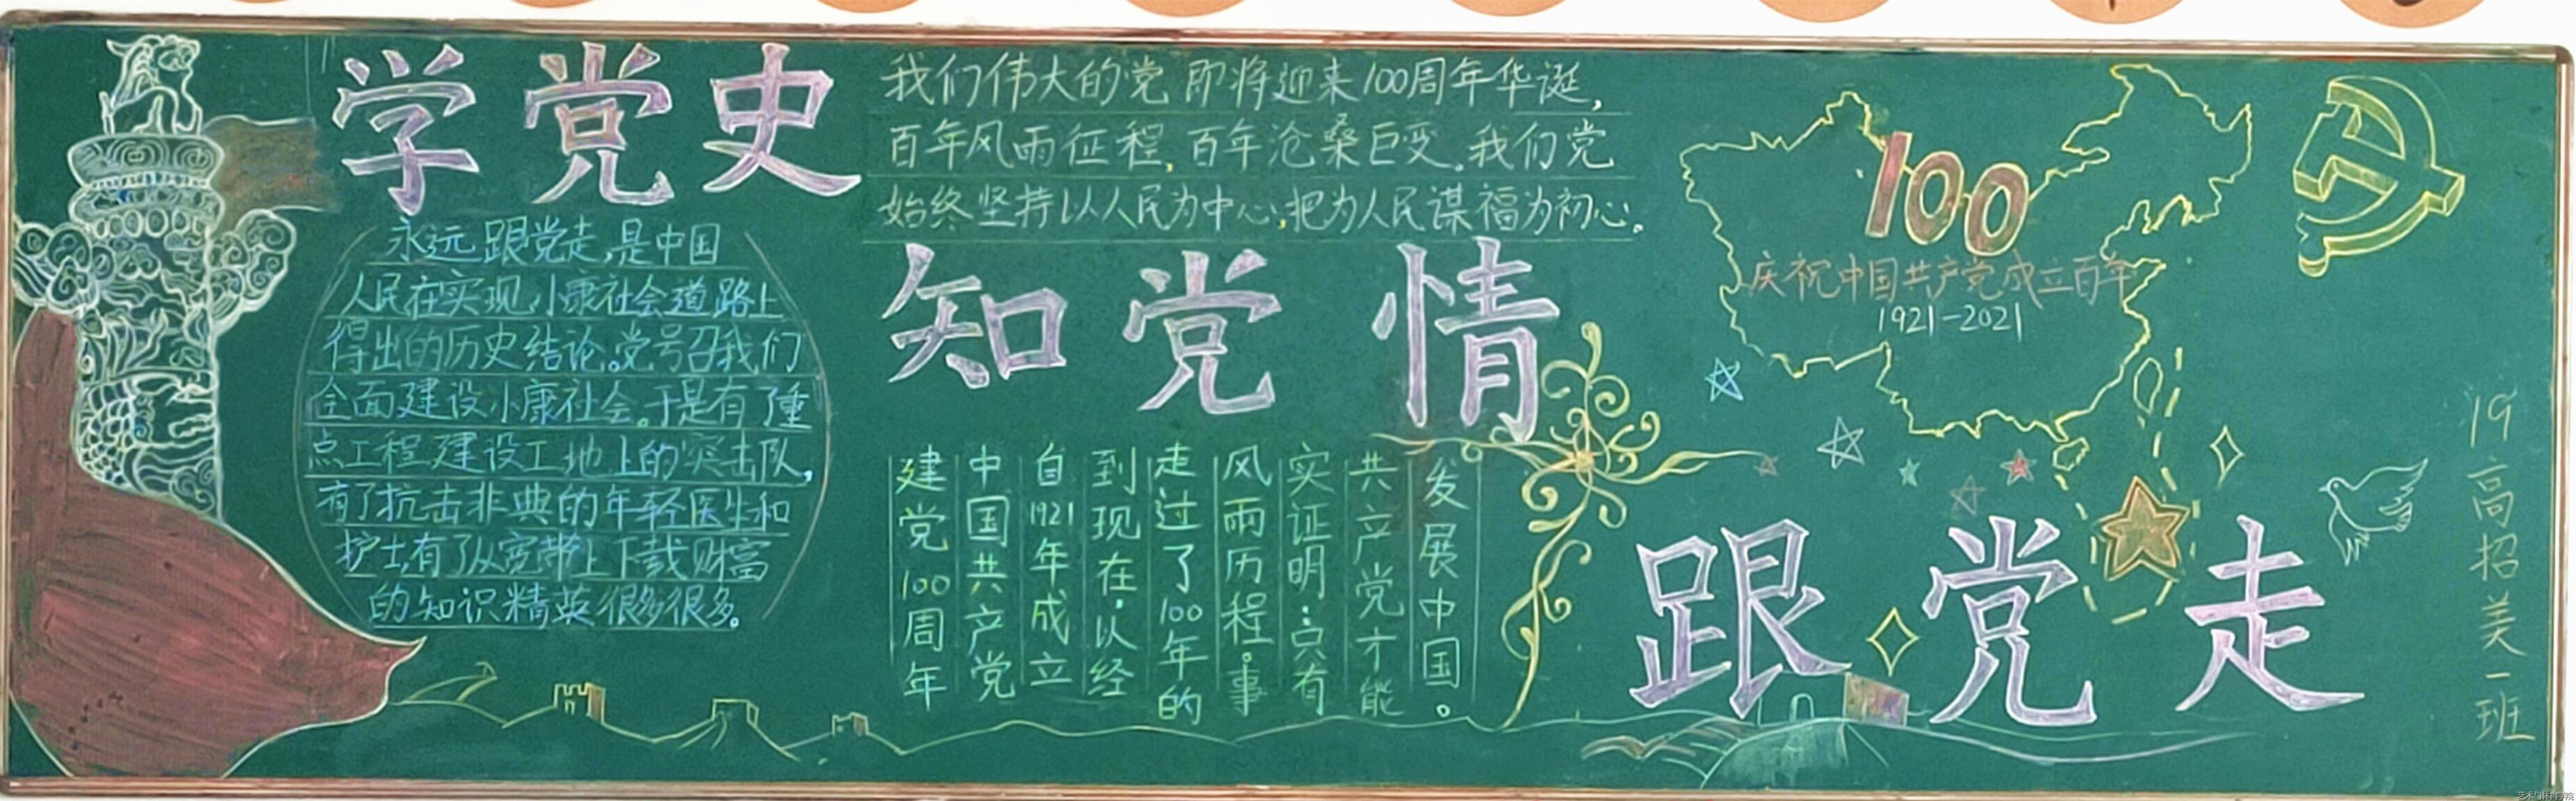 学党史
永远跟党走,是中国
人民在实现小康社会道路上
得出的历史结论。党号召我们
全面建设小康社会。于是有了重
点工程建设工地上的突击队,
有了抗击非典的年轻医生和
护士有了从宽带上下载财富
的知识精英很多很多。
我们伟大的党即将迎来100周年华诞,
百年风雨征程,百年沧桑巨变。我们党
始终坚持以人民为中心,把为人民谋福为初心。
知党情
建党100周年
中国共产党
自1921年成立
到现在,以经
走过了100年的
风雨历程。事
实证明:只有
共产党才能
发展中国。
100
庆祝中国共产党成立百年
1921-2021
跟党走
19高招美一班